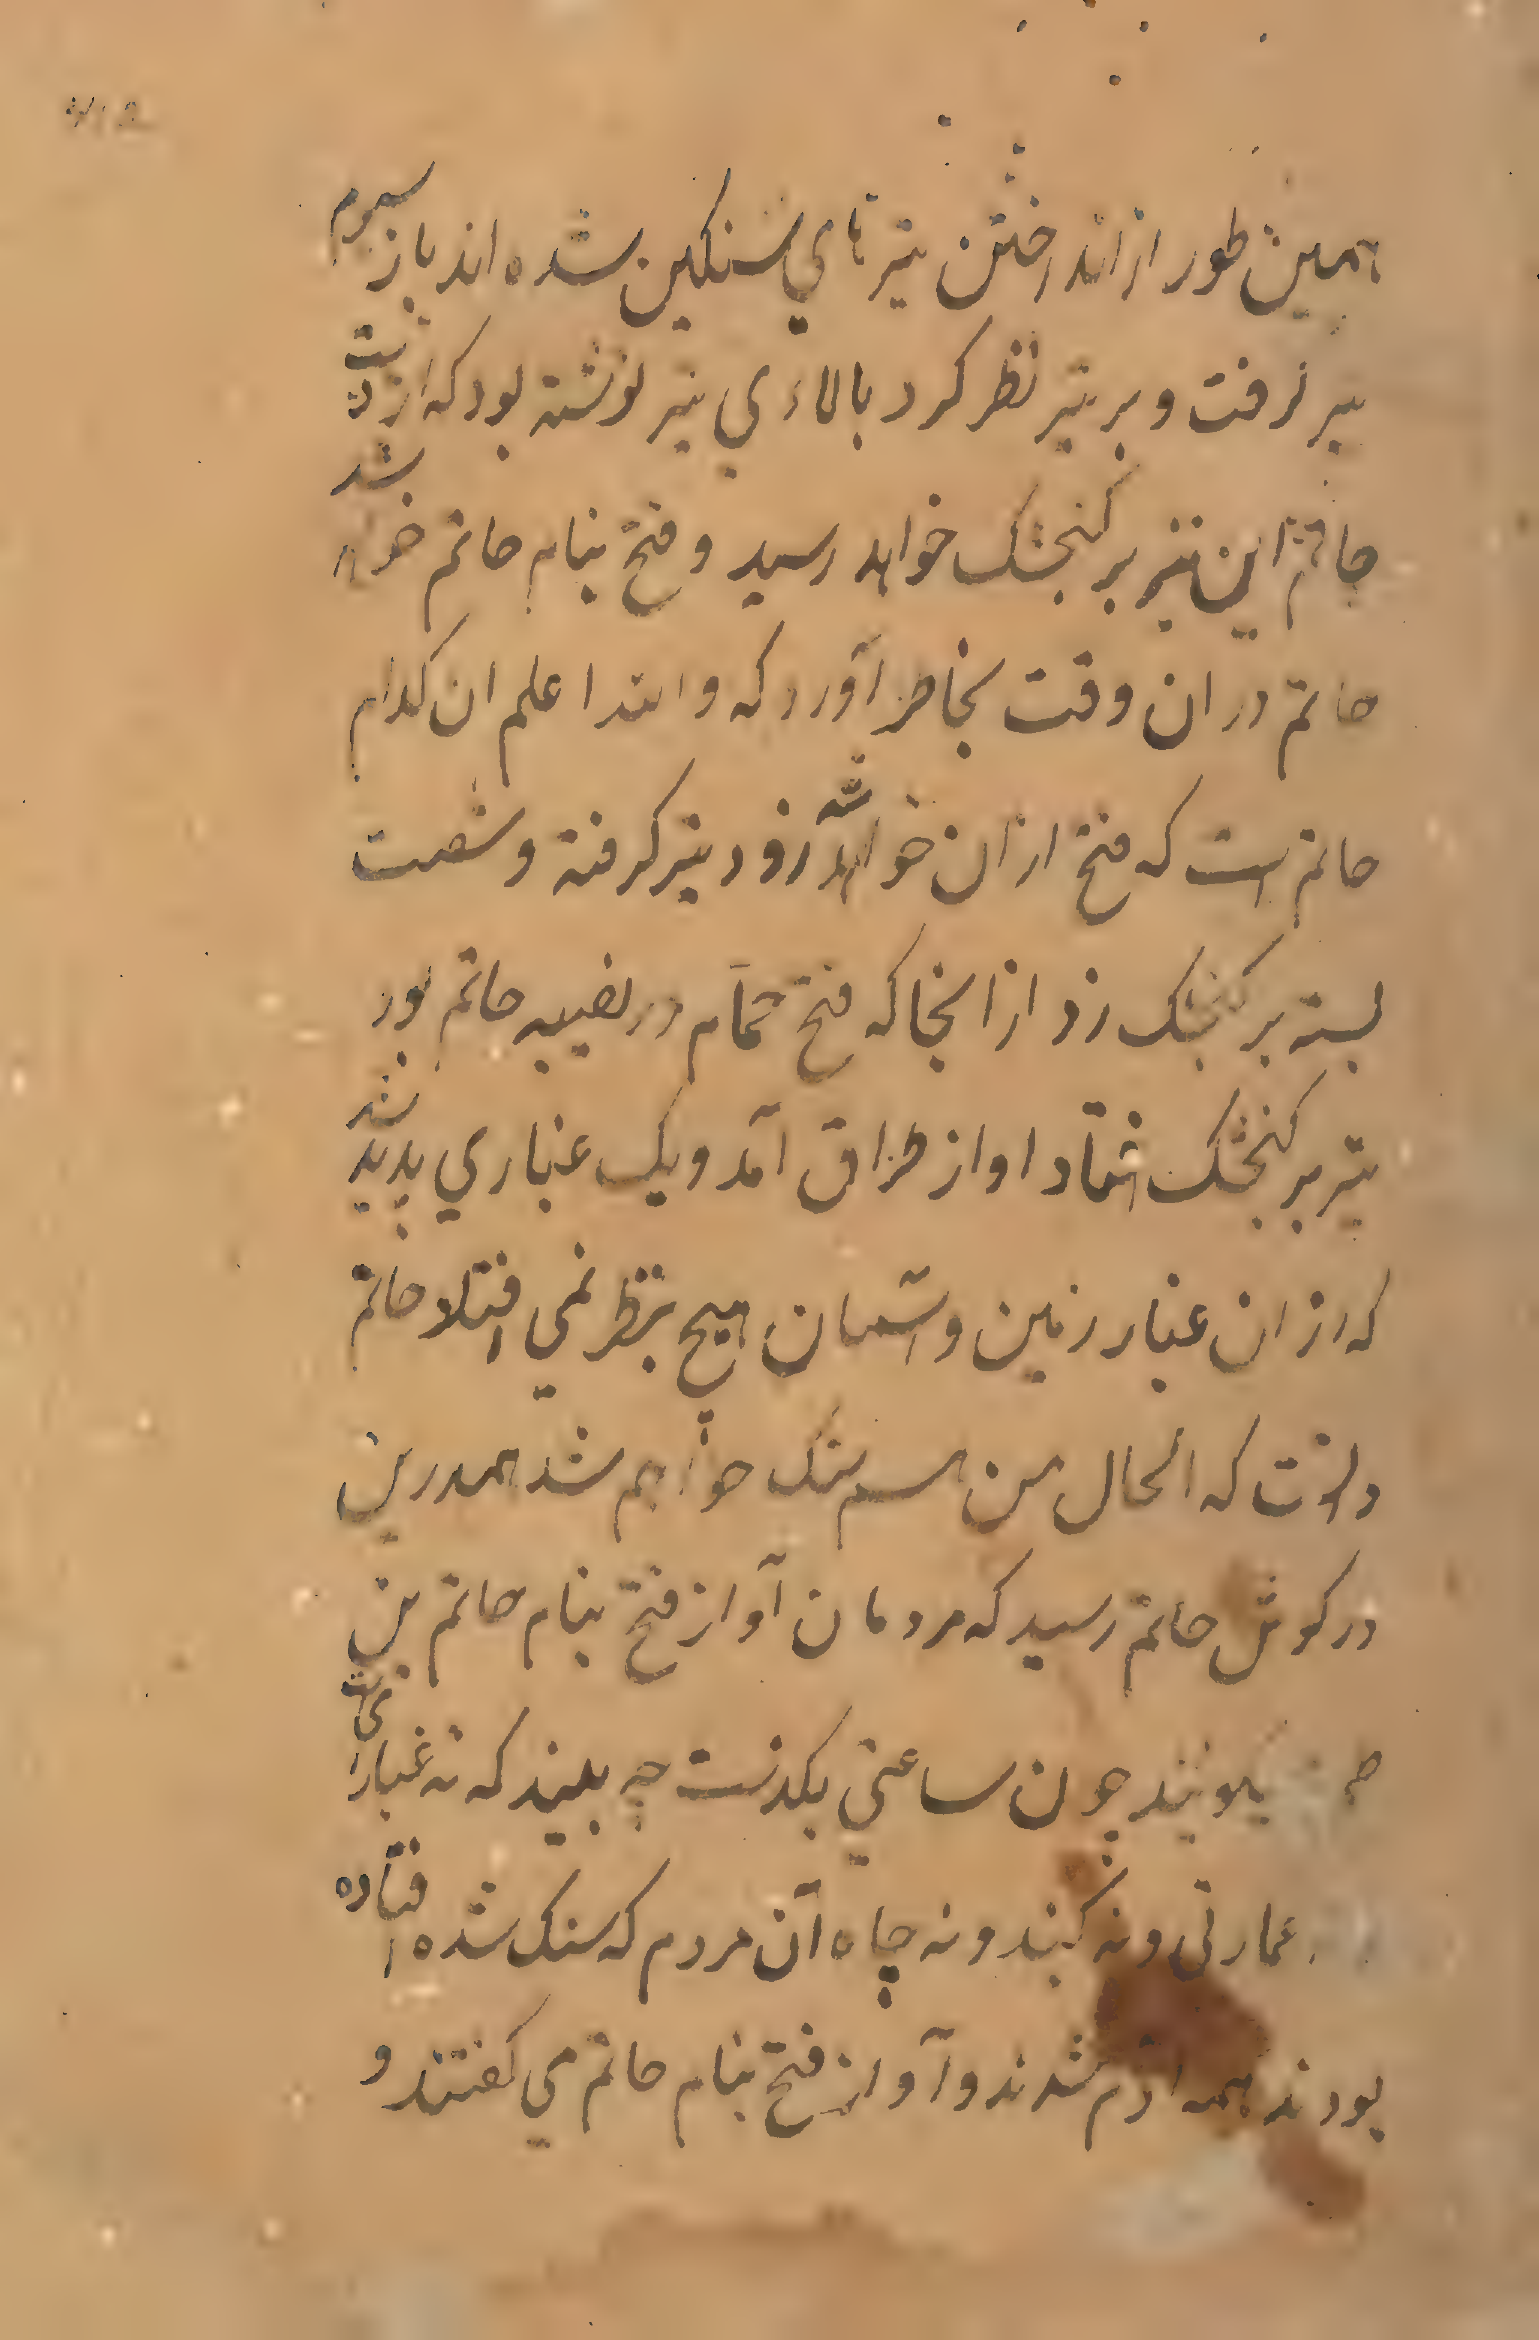 همین طور از انداختن تیر تای سنکین شده اند باز سیوم
تیر گرفت و بر تیر نظر کرد بالاءی تیر نوشته بود که از دست
حاتم این تیر بر کنجشک خواهد رسید و فتح بنام حاتم خواهد شد
حاتم در ان وقت بخاطر آورد که و ابتدا علم ان کدام
حاتم است که فتح از ان خواهد شد زود تیر کرفته و شصت
بسته بر کنجشک زد از انجا که فتح حمام در نصیبه حاتم بود
تیر بر کنجشک افتاد اواز طراق آمد و یک غباری پدید شد
که از ان غبار زمین و آسمان هیچ بنظر نمی افتاد حاتم
دانست که الحال من هم سنک خواهم شد همدرین
در کوش حاتم رسید که مردمان آواز فتح بنام حاتم بن
طی میکویند چون ساعتی بکذشت چه بیند که نه غبار است
نه عمارتی و نه کنبد و نه چاه آن مردم که سنک شده افتاده
بودند همه ادم شدند و آواز فتح بنام حاتم می کفتند و